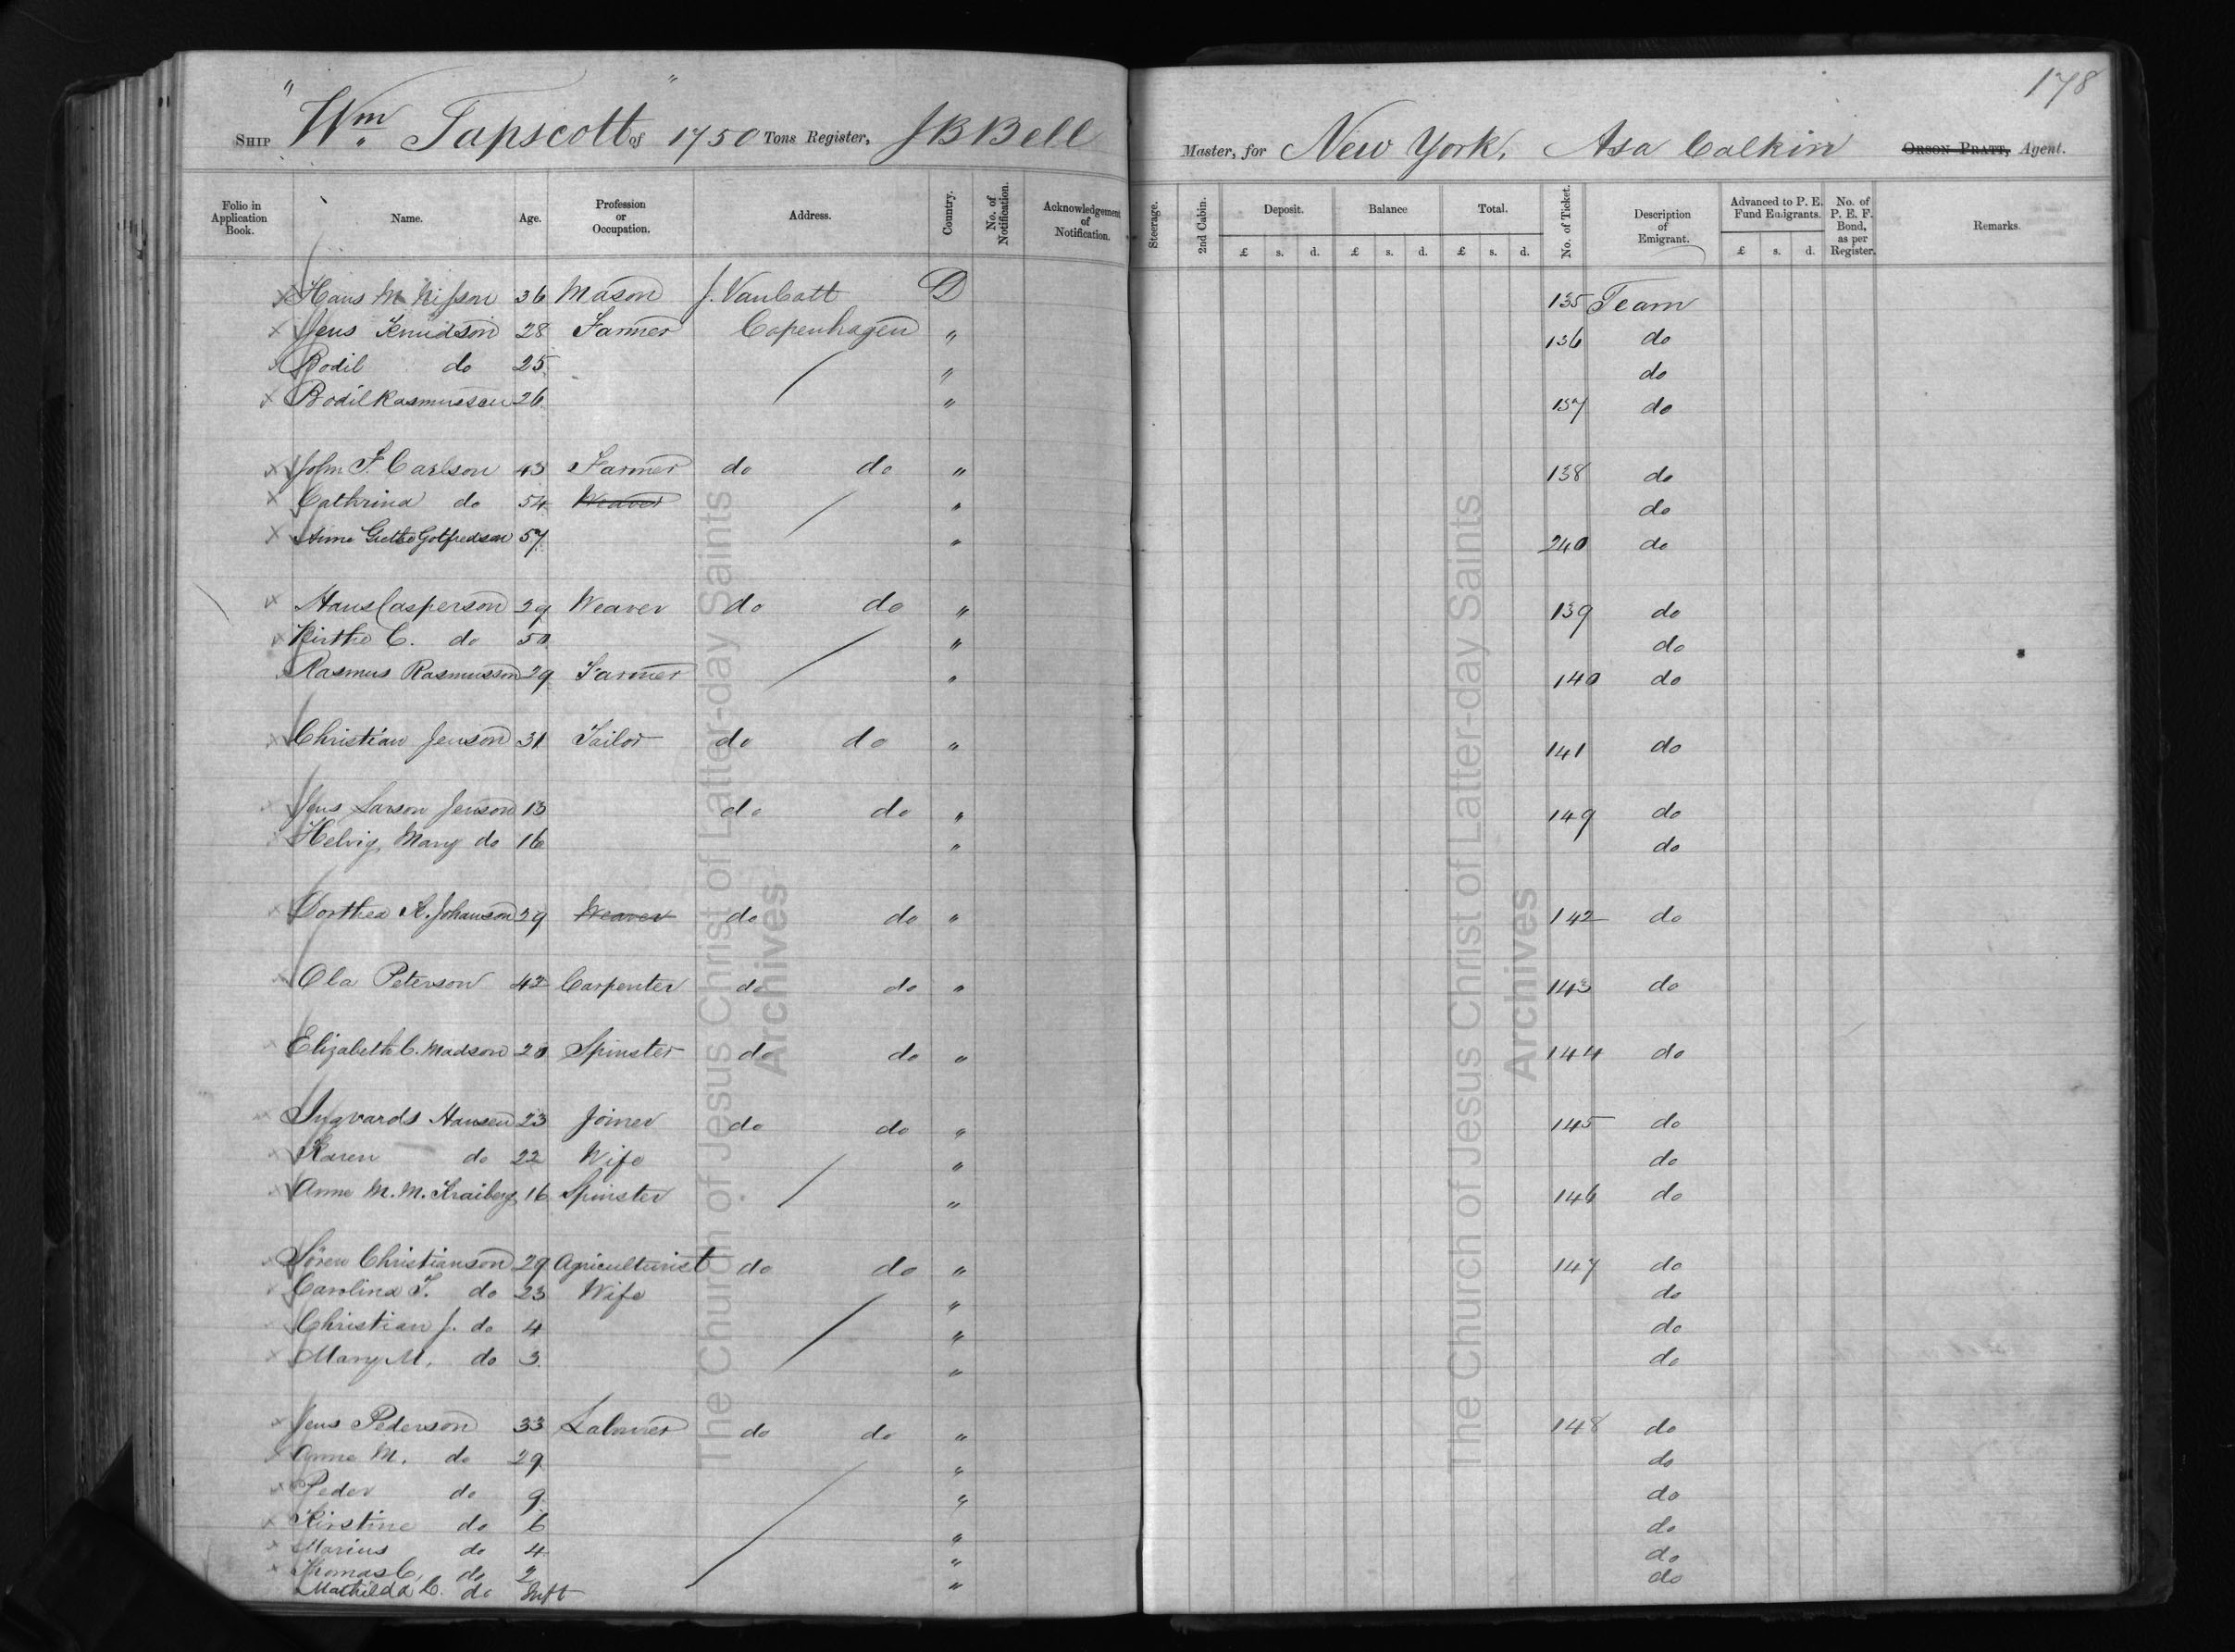 178
SHIP "Wm Tapscott" of 1750 Tons Register, J B Bell Master, for New York. Asa Calkin ORSON PRATT, Agent.
Folio in Application Book. Name. Age. Profession or Occupation. Address. Country. No. of Notification. Acknowledgement of Notification. Steerage. 2nd Cabin. Deposit. Balance Total. No. of Ticket. Description of Emigrant. Advanced to P. E. Fund Emigrants. No. of P. E. F. Bond, as per Register. Remarks.
£ s. d. £ s. d. £ s. d. £ s. d.
x Hans M Nisson 36 Mason J. VanCott D 135 Team
x Jens Knudson 28 Farmer Copenhagen " 136 do
x Bodil do 25 " do
x Bodil Rasmussen 26 " 137 do
x John F. Carlson 43 Farmer do do " 138 do
x Cathrina do 54 Weaver " do
x Anne Grethe Gotfredson 57 " 240 do
x Hans Casperson 29 Weaver do do " 139 do
x Kirthe C. do 50 " do
Rasmus Rasmusson 29 Farmer " 140 do
x Christian Jenson 31 Tailor do do " 141 do
x Jens Larson Jenson 13 do do " 149 do
x Helvig Mary do 16 " do
x Dorthea K. Johanson 29 Weaver do do " 142 do
x Ola Peterson 42 Carpenter do do " 143 do
x Elizabeth C. Madson 20 Spinster do do " 144 do
x Ingvards Hansen 23 Joiner do do " 145 do
x Karen do 22 Wife " do
x Anne M. M. Kraiberg 16 Spinster " 146 do
x Sören Christianson 29 Agriculturist do do " 147 do
x Carolina F. do 23 Wife " do
x Christian J. do 4 " do
x Mary M. do 3 " do
x Jens Pederson 33 Labourer do do " 148 do
x Anne M. do 29 " do
x Peder do 9 " do
x Kirstine do 6 " do
x Marius do 4 " do
x Thomas C. do 2 " do
Mathilda C. do Inft "
The Church of Jesus Christ of Latter-day Saints
Archives
The Church of Jesus Christ of Latter-day Saints
Archives